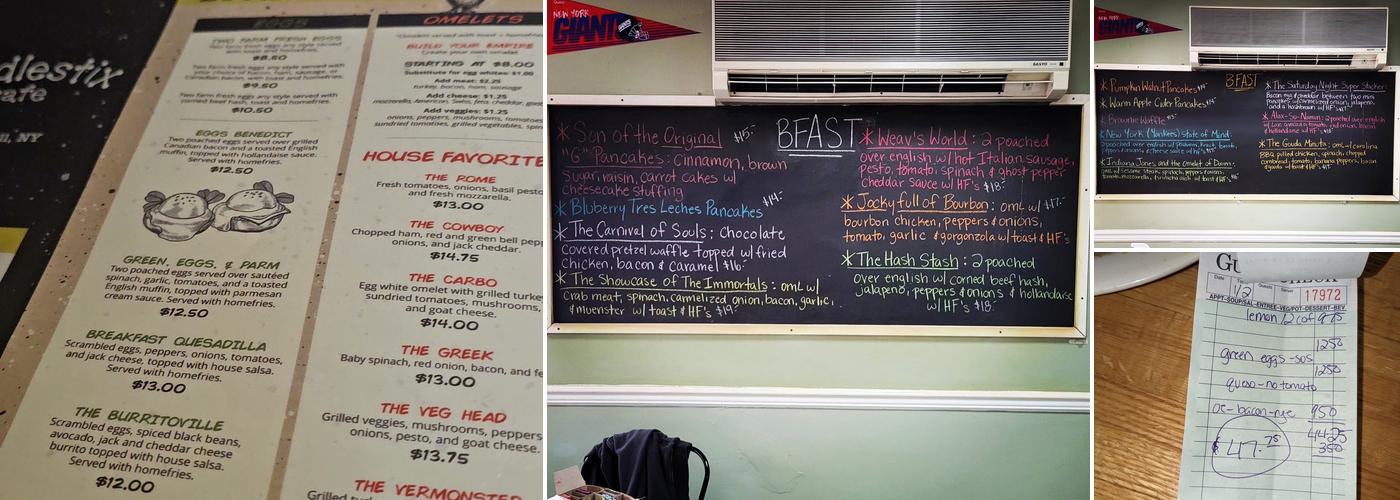 dlestix
afe
, NY
EGGS
TWO FARM FRESH EGGS
Two farm fresh eggs any style served
with toast and homefries.
$8.50
Two farm fresh eggs any style served with
your choice of bacon, ham, sausage, or
Canadian bacon, with toast and homefries.
$9.50
Two farm fresh eggs any style served with
corned beef hash, toast and homefries.
$10.50
EGGS BENEDICT
Two poached eggs served over grilled
Canadian bacon and a toasted English
muffin, topped with hollandaise sauce.
Served with homefries.
$12.50
GREEN, EGGS, & PARM
Two poached eggs served over sautéed
spinach, garlic, tomatoes, and a toasted
English muffin, topped with parmesan
cream sauce. Served with homefries.
$12.50
BREAKFAST QUESADILLA
Scrambled eggs, peppers, onions, tomatoes,
and jack cheese, topped with house salsa.
Served with homefries.
$13.00
THE BURRITOVILLE
Scrambled eggs, spiced black beans,
avocado, jack and cheddar cheese
burrito topped with house salsa.
Served with homefries.
$12.00
OMELETS
BUILD YOUR EMPIRE
Create your own omelet
STARTING AT $8.00
Substitute for egg whites: $1.00
Add meat: $2.25
turkey, bacon, ham, sausage
Add cheese: $1.25
mozzarella, American, Swiss, feta, cheddar, goat
Add veggies: $1.25
onions, peppers, mushrooms, tomatoes
sundried tomatoes, grilled vegetables, spin
HOUSE FAVORITE
THE ROME
Fresh tomatoes, onions, basil pesto
and fresh mozzarella.
$13.00
THE COWBOY
Chopped ham, red and green bell pepp
onions, and jack cheddar.
$14.75
THE CARBO
Egg white omelet with grilled turkey
sundried tomatoes, mushrooms,
and goat cheese.
$14.00
THE GREEK
Baby spinach, red onion, bacon, and fe
$13.00
THE VEG HEAD
Grilled veggies, mushrooms, peppers
onions, pesto, and goat cheese.
$13.75
THE VERMONSTER
NEW YORK
GIANTS
SANYO
BFAST
* Son of the Original $15-
"G" Pancakes: Cinnamon, brown
Sugar, raisin, carrot cakes w/
cheesecake stuffing
* Bluberry Tres Leches Pancakes $14-
* The Carnival of Souls: chocolate
Covered pretzel waffle topped w/ fried
chicken, bacon & caramel $16-
* The Showcase of The Immortals: omL w/
Crab meat, spinach, carmelized onion, bacon, garlic,
& muenster w/ toast & HF's $19-
* Weav's World: 2 poached
over english w/ hot Italian sausage,
pesto, tomato, spinach & ghost pepper
cheddar sauce w/ HF's $18-
* Jocky full of Bourbon: omL w/ $17-
bourbon chicken, Peppers & onions,
tomato, garlic & gorgonzola w/ toast & HF's
* The Hash Stash: 2 poached
over english w/ corned beef hash,
jalapeño, peppers & onions & hollandaise
w/ HF's $18-
NEW YORK
GIANTS
SANYO
BFAST
* Pumpkin Walnut Pancakes
* Warm Apple Cider Pancakes
* Brownie Waffle
* New York (Yankees) State of Mind:
* Indiana Jones and the Omelet of Doom:
* The Saturday Night Super Sticker:
Bacon egg & cheddar between two mini
pancakes w/ carmelized onion, jalapeño,
and a hashbrown w/ HF's
* Alex-So-Namin: 2 poached over engl
* The Gouda Minuta: omL w/ carolina
BBQ pulled chicken, spinach, chopped
cornbread, tomato, banana peppers, bacon
& gouda w/ toast & HF's
GU
Date
Guests
17972
APPT-SOUP/SAL-ENTREE-VEG/POT-DESSERT-BEV
lemon / 2 cof 975
1250
green eggs -sos
1250
queso - no tomato
oe - bacon - rye 950
4425
350
$47.75